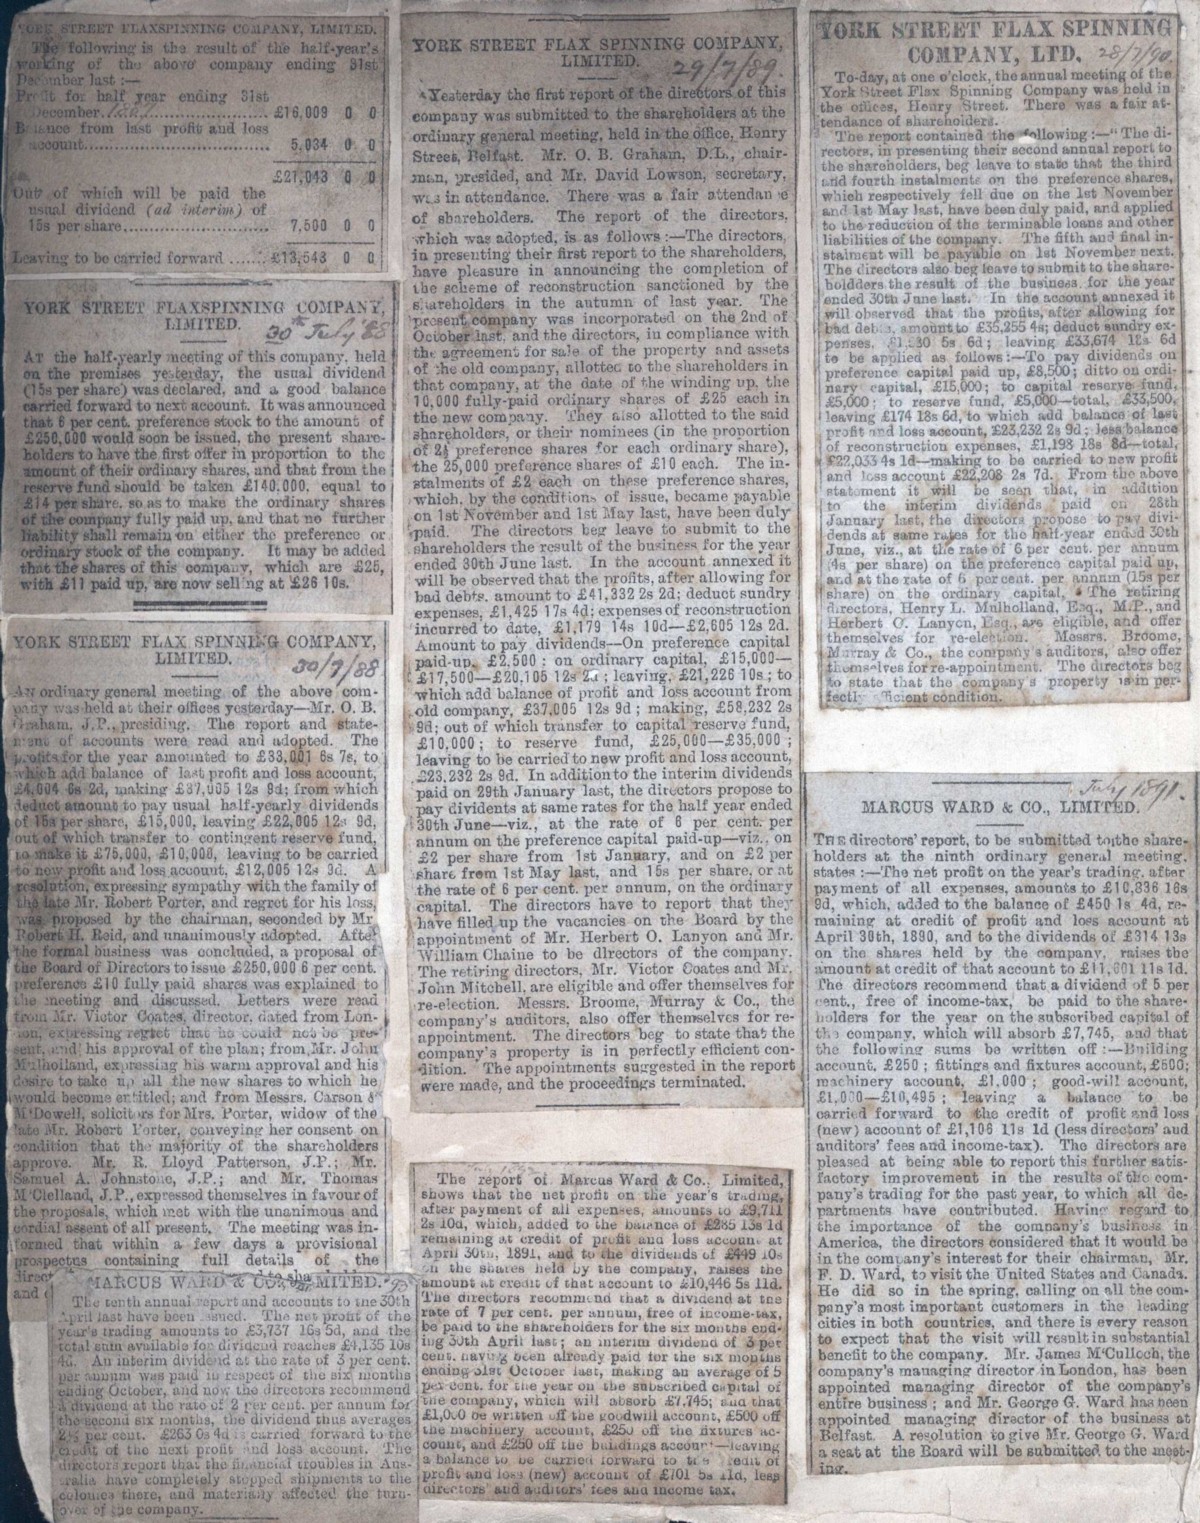 YORK STREET FLAXSPINNING COMPANY, LIMITED.
The following is the result of the half-year's
working of the above company ending 31st
December last:—
Profit for half year ending 31st
December, ........ £16,009 0 0
Balance from last profit and loss
account........ 5,034 0 0
£21,043 0 0
Out of which will be paid the
usual dividend (ad interim) of
15s per share........ 7,500 0 0
Leaving to be carried forward ...... £13,543 0 0
YORK STREET FLAXSPINNING COMPANY,
LIMITED. 30th July '88
AT the half-yearly meeting of this company, held
on the premises yesterday, the usual dividend
(15s per share) was declared, and a good balance
carried forward to next account. It was announced
that 6 per cent. preference stock to the amount of
£250,000 would soon be issued, the present share-
holders to have the first offer in proportion to the
amount of their ordinary shares, and that from the
reserve fund should be taken £140.000. equal to
£14 per share. so as to make the ordinary shares
of the company fully paid up, and that no further
liability shall remain on either the preference or
ordinary stock of the company. It may be added
that the shares of this company, which are £25,
with £11 paid up, are now selling at £26 10s.
YORK STREET FLAX SPINNING COMPANY,
LIMITED. 30/7/88
AN ordinary general meeting of the above com-
pany was held at their offices yesterday—Mr. O. B.
Graham, J.P., presiding. The report and state-
ment of accounts were read and adopted. The
profits for the year amounted to £33,001 6s 7s, to
which add balance of last profit and loss account,
£4,004 6s 2d, making £37,005 12s 9d; from which
deduct amount to pay usual half-yearly dividends
of 15s per share, £15,000, leaving £22,005 12s 9d,
out of which transfer to contingent reserve fund,
to make it £75,000, £10,000, leaving to be carried
to new profit and loss account, £12,005 12s 9d. A
resolution, expressing sympathy with the family of
the late Mr. Robert Porter, and regret for his loss,
was proposed by the chairman, seconded by Mr
Robert H. Reid, and unanimously adopted. After
the formal business was concluded, a proposal of
the Board of Directors to issue £250,000 6 per cent.
preference £10 fully paid shares was explained to
the meeting and discussed. Letters were read
from Mr. Victor Coates, director, dated from Lon-
don, expressing regret that he could not be pre-
sent, and his approval of the plan; from Mr. John
Mulholland, expressing his warm approval and his
desire to take up all the new shares to which he
would become entitled; and from Messrs. Carson &
M'Dowell, solicitors for Mrs. Porter, widow of the
late Mr. Robert Porter, conveying her consent on
condition that the majority of the shareholders
approve. Mr. R. Lloyd Patterson, J.P.; Mr.
Samuel A. Johnstone, J.P.; and Mr. Thomas
M'Clelland, J.P., expressed themselves in favour of
the proposals, which met with the unanimous and
cordial assent of all present. The meeting was in-
formed that within a few days a provisional
prospectus containing full details of the
direct
and
MARCUS WARD & CO., LIMITED.
The tenth annual report and accounts to the 30th
April last have been issued. The net profit of the
year's trading amounts to £3,737 16s 5d, and the
total sum available for dividend reaches £4,135 10s
4d. An interim dividend at the rate of 3 per cent.
per annum was paid in respect of the six months
ending October, and now the directors recommend
a dividend at the rate of 2 per cent. per annum for
the second six months, the dividend thus averages
2½ per cent. £263 0s 4d is carried forward to the
credit of the next profit and loss account. The
directors report that the financial troubles in Aus-
tralia have completely stopped shipments to the
colonies there, and materially affected the turn-
over of the company.
YORK STREET FLAX SPINNING COMPANY,
LIMITED. 29/7/89.
Yesterday the first report of the directors of this
company was submitted to the shareholders at the
ordinary general meeting, held in the office, Henry
Street, Belfast. Mr. O. B. Graham, D.L., chair-
man, presided, and Mr. David Lowson, secretary,
was in attendance. There was a fair attendance
of shareholders. The report of the directors,
which was adopted, is as follows:—The directors,
in presenting their first report to the shareholders,
have pleasure in announcing the completion of
the scheme of reconstruction sanctioned by the
shareholders in the autumn of last year. The
present company was incorporated on the 2nd of
October last, and the directors, in compliance with
the agreement for sale of the property and assets
of the old company, allotted to the shareholders in
that company, at the date of the winding up, the
10,000 fully-paid ordinary shares of £25 each in
the new company. They also allotted to the said
shareholders, or their nominees (in the proportion
of 2½ preference shares for each ordinary share),
the 25,000 preference shares of £10 each. The in-
stalments of £2 each on these preference shares,
which, by the conditions of issue, became payable
on 1st November and 1st May last, have been duly
paid. The directors beg leave to submit to the
shareholders the result of the business for the year
ended 30th June last. In the account annexed it
will be observed that the profits, after allowing for
bad debts, amount to £41,332 2s 2d; deduct sundry
expenses, £1,425 17s 4d; expenses of reconstruction
incurred to date, £1,179 14s 10d—£2,605 12s 2d.
Amount to pay dividends—On preference capital
paid-up, £2,500: on ordinary capital, £15,000—
£17,500—£20,105 12s 2d; leaving, £21,226 10s; to
which add balance of profit and loss account from
old company, £37,005 12s 9d; making, £58,232 2s
9d; out of which transfer to capital reserve fund,
£10,000; to reserve fund, £25,000—£35,000;
leaving to be carried to new profit and loss account,
£23,232 2s 9d. In addition to the interim dividends
paid on 29th January last, the directors propose to
pay dividends at same rates for the half year ended
30th June—viz., at the rate of 6 per cent. per
annum on the preference capital paid-up—viz., on
£2 per share from 1st January, and on £2 per
share from 1st May last, and 15s per share, or at
the rate of 6 per cent. per annum, on the ordinary
capital. The directors have to report that they
have filled up the vacancies on the Board by the
appointment of Mr. Herbert O. Lanyon and Mr.
William Chaine to be directors of the company.
The retiring directors, Mr. Victor Coates and Mr.
John Mitchell, are eligible and offer themselves for
re-election. Messrs. Broome, Murray & Co., the
company's auditors, also offer themselves for re-
appointment. The directors beg to state that the
company's property is in perfectly efficient con-
dition. The appointments suggested in the report
were made, and the proceedings terminated.
The report of Marcus Ward & Co., Limited,
shows that the net profit on the year's trading,
after payment of all expenses, amounts to £9,711
2s 10d, which, added to the balance of £285 13s 1d
remaining at credit of profit and loss account at
April 30th, 1891, and to the dividends of £449 10s
on the shares held by the company, raises the
amount at credit of that account to £10,446 5s 11d.
The directors recommend that a dividend at the
rate of 7 per cent. per annum, free of income-tax,
be paid to the shareholders for the six months end-
ing 30th April last; an interim dividend of 3 per
cent. having been already paid for the six months
ending 31st October last, making an average of 5
per cent. for the year on the subscribed capital of
the company, which will absorb £7,745; and that
£1,000 be written off the goodwill account, £500 off
the machinery account, £250 off the fixtures ac-
count, and £250 off the buildings account—leaving
a balance to be carried forward to the credit of
profit and loss (new) account of £701 5s 11d, less
directors' and auditors' fees and income tax.
YORK STREET FLAX SPINNING
COMPANY, LTD. 28/7/90
To-day, at one o'clock, the annual meeting of the
York Street Flax Spinning Company was held in
the offices, Henry Street. There was a fair at-
tendance of shareholders.
The report contained the following:—"The di-
rectors, in presenting their second annual report to
the shareholders, beg leave to state that the third
and fourth instalments on the preference shares,
which respectively fell due on the 1st November
and 1st May last, have been duly paid, and applied
to the reduction of the terminable loans and other
liabilities of the company. The fifth and final in-
stalment will be payable on 1st November next.
The directors also beg leave to submit to the share-
holdders the result of the business for the year
ended 30th June last. In the account annexed it
will observed that the profits, after allowing for
bad debts, amount to £35,255 4s; deduct sundry ex-
penses, 5s 6d; leaving £33,674 12s 6d
to be applied as follows:—To pay dividends on
preference capital paid up, £8,500; ditto on ordi-
nary capital, £15,000; to capital reserve fund,
£5,000; to reserve fund, £5,000—total, £33,500,
leaving £174 18s 6d, to which add balance of last
profit and loss account, £23,232 2s 9d; less balance
of reconstruction expenses, £1,198 18s 8d—total,
£22,033 4s 1d—making to be carried to new profit
and loss account £22,208 2s 7d. From the above
statement it will be seen that, in addition
to the interim dividends paid on 28th
January last, the directors propose to pay divi-
dends at same rates for the half-year ended 30th
June, viz., at the rate of 6 per cent. per annum
(4s per share) on the preference capital paid up,
and at the rate of 6 per cent. per annum (15s per
share) on the ordinary capital. The retiring
directors, Henry L. Mulholland, Esq., M.P., and
Herbert O. Lanyon, Esq., are eligible, and offer
themselves for re-election. Messrs. Broome,
Murray & Co., the company's auditors, also offer
themselves for re-appointment. The directors beg
to state that the company's property is in per-
fectly efficient condition.
July 1891.
MARCUS WARD & CO., LIMITED.
THE directors' report, to be submitted to the share-
holders at the ninth ordinary general meeting,
states:—The net profit on the year's trading, after
payment of all expenses, amounts to £10,836 16s
9d, which, added to the balance of £450 1s 4d, re-
maining at credit of profit and loss account at
April 30th, 1890, and to the dividends of £314 13s
on the shares held by the company, raises the
amount at credit of that account to £11,601 11s 1d.
The directors recommend that a dividend of 5 per
cent., free of income-tax, be paid to the share-
holders for the year on the subscribed capital of
the company, which will absorb £7,745, and that
the following sums be written off:—Building
account, £250; fittings and fixtures account, £500;
machinery account, £1,000; good-will account,
£1,000—£10,495; leaving a balance to be
carried forward to the credit of profit and loss
(new) account of £1,106 11s 1d (less directors' and
auditors' fees and income-tax). The directors are
pleased at being able to report this further satis-
factory improvement in the results of the com-
pany's trading for the past year, to which all de-
partments have contributed. Having regard to
the importance of the company's business in
America, the directors considered that it would be
in the company's interest for their chairman, Mr.
F. D. Ward, to visit the United States and Canada.
He did so in the spring, calling on all the com-
pany's most important customers in the leading
cities in both countries, and there is every reason
to expect that the visit will result in substantial
benefit to the company. Mr. James M'Culloch, the
company's managing director in London, has been
appointed managing director of the company's
entire business; and Mr. George G. Ward has been
appointed managing director of the business at
Belfast. A resolution to give Mr. George G. Ward
a seat at the Board will be submitted to the meet-
ing.